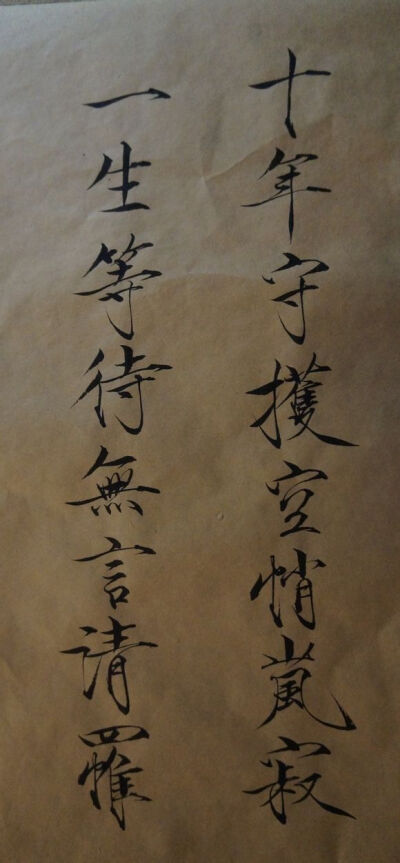 十年守擭空悄嵐寂
一生等待無言請罹